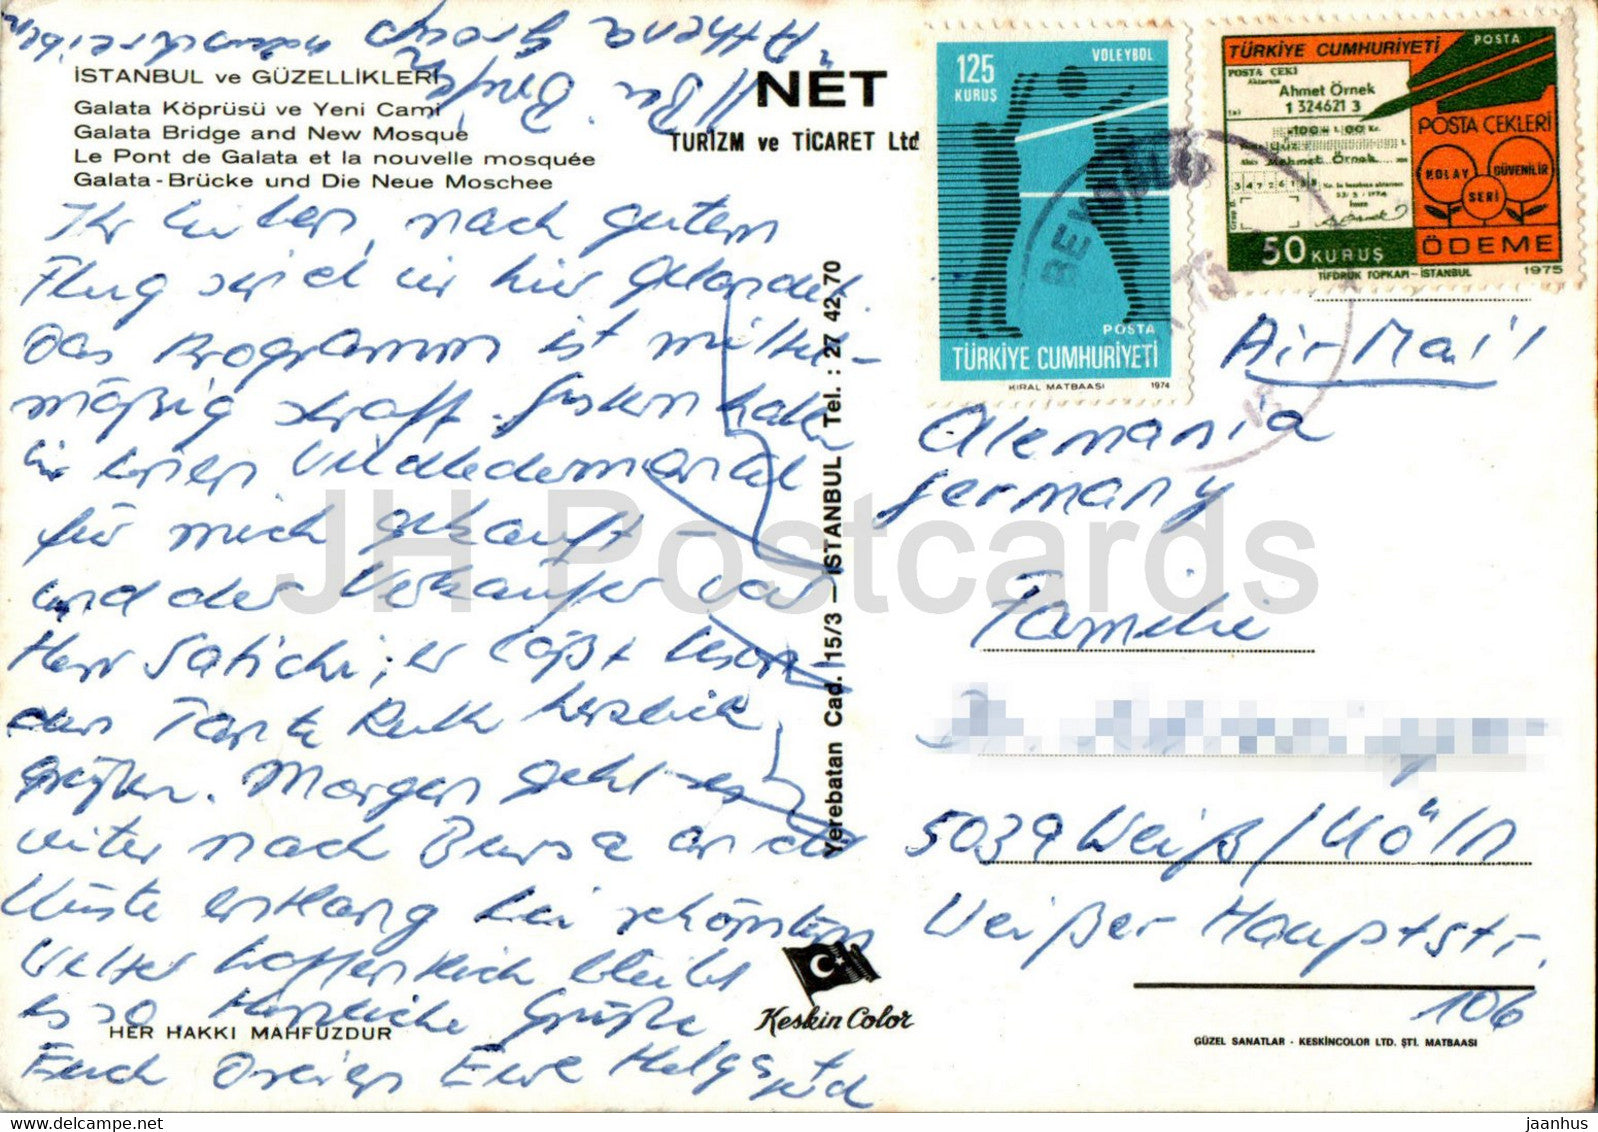 "Athena Group" notenschreiben
!! Bei Briefen
İSTANBUL ve GÜZELLİKLERİ
Galata Köprüsü ve Yeni Cami
Galata Bridge and New Mosque
Le Pont de Galata et la nouvelle mosquée
Galata-Brücke und Die Neue Moschee
NET
TURİZM ve TİCARET Ltd
Ihr Lieben, nach gutem
Flug sind wir hier gelandet.
Das Programm ist mittel-
mäßig straff. Gestern haben
wir einen Wildledermantel
für mich gekauft –
und der Verkäufer war
Herr Satichi; er läßt beson-
ders Tante Ruth herzlich
grüßen. Morgen geht es
weiter nach Bursa an der
Küste entlang bei schönstem
Wetter hoffentlich bleibt
es so Herzliche Grüße
Euch Dreien Eure Helga und
HER HAKKI MAHFUZDUR
Yerebatan Cad. 15/3 – İSTANBUL Tel. : 27 42 70
Keskin Color
125
KURUŞ
VOLEYBOL
POSTA
TÜRKİYE CUMHURİYETİ
KIRAL MATBAASI 1974
TÜRKİYE CUMHURİYETİ POSTA
POSTA ÇEKİ
Ahmet Örnek
1 324621 3
Mehmet Örnek
POSTA ÇEKLERİ
KOLAY
SERİ
GÜVENİLİR
50 KURUŞ
ÖDEME
TİFDRUK TOPKAPI – İSTANBUL 1975
BEYOĞLU
Air Mail
Alemania
Germany
Familie
Dr.
5039 Weiß / Köln
Weißer Hauptstr.
106
GÜZEL SANATLAR - KESKİNCOLOR LTD. ŞTİ. MATBAASI
JH Postcards
jaanhus @ delcampe.net